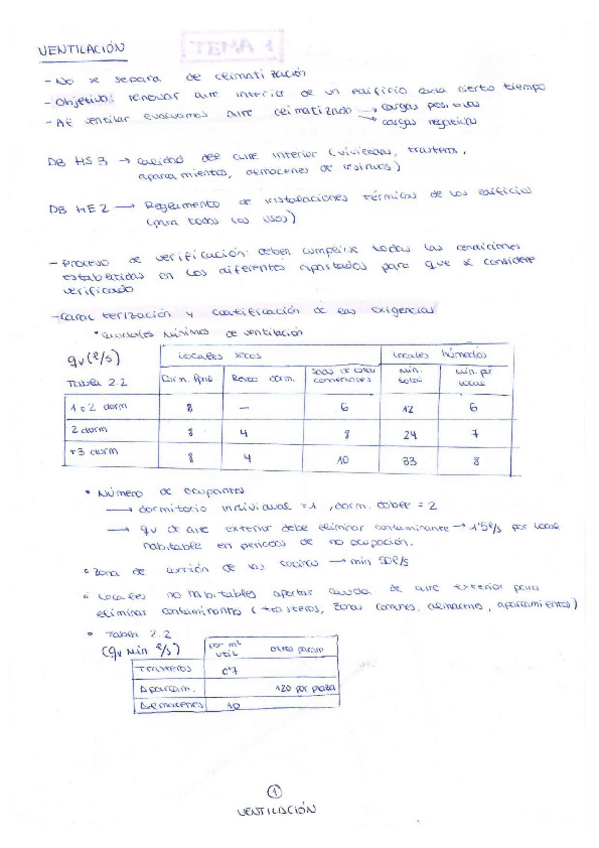 VENTILACIÓN
TEMA 1
- No se separa de climatización
- Objetivo: renovar aire interior de un edificio cada cierto tiempo
- Al ventilar evacuamos aire climatizado → cargas positivas
→ cargas negativas
DB HS 3 → calidad del aire interior (viviendas, trasteros,
aparcamientos, almacenes de residuos)
DB HE 2 → Reglamento de instalaciones térmicas de los edificios
(para todos los usos)
- Proceso de verificación: deben cumplirse todas las condiciones
establecidas en los diferentes apartados para que se considere
verificado
- Caracterización y cuantificación de las exigencias
• Caudales mínimos de ventilación
qv (l/s) locales secos locales húmedos
Tabla 2.2 Dorm. Ppal Resto dorm. Salas de estar comedores min. total min. por local
1 o 2 dorm 8 — 6 12 6
2 dorm 8 4 8 24 7
+3 dorm 8 4 10 33 8
• Número de ocupantes
→ dormitorio individual = 1, dorm. doble = 2
→ qv de aire exterior debe eliminar contaminante → 1'5 l/s por local
habitable en periodos de no ocupación.
• Zona de cocción de las cocinas → min 50 l/s
• Locales no habitables aportar de aire exterior para
eliminar contaminantes (trasteros, zonas comunes, almacenes, aparcamientos)
• Tabla 2.2
(qv min l/s) por m² útil otros param
Trasteros 0'7
Aparcam. 120 por plaza
Almacenes 10
1
VENTILACIÓN